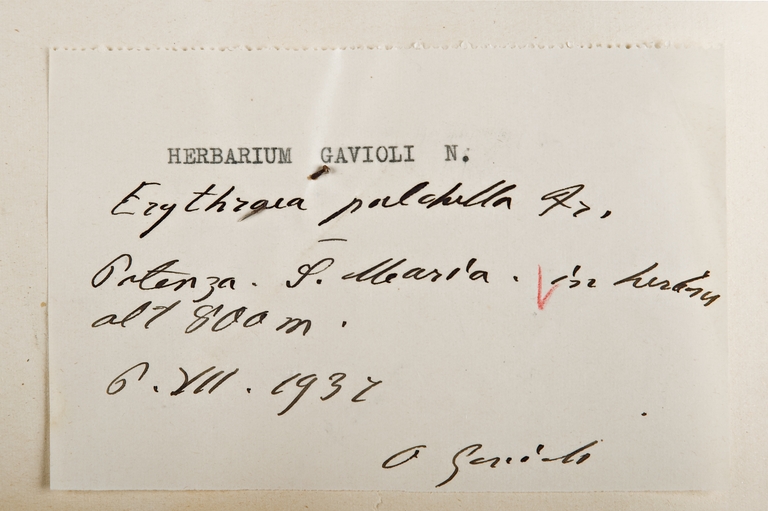 HERBARIUM GAVIOLI N.
Erythraea pulchella Fr.
Potenza. S. Maria. in herbosis
alt 800 m.
6. VII. 1937
O Gavioli